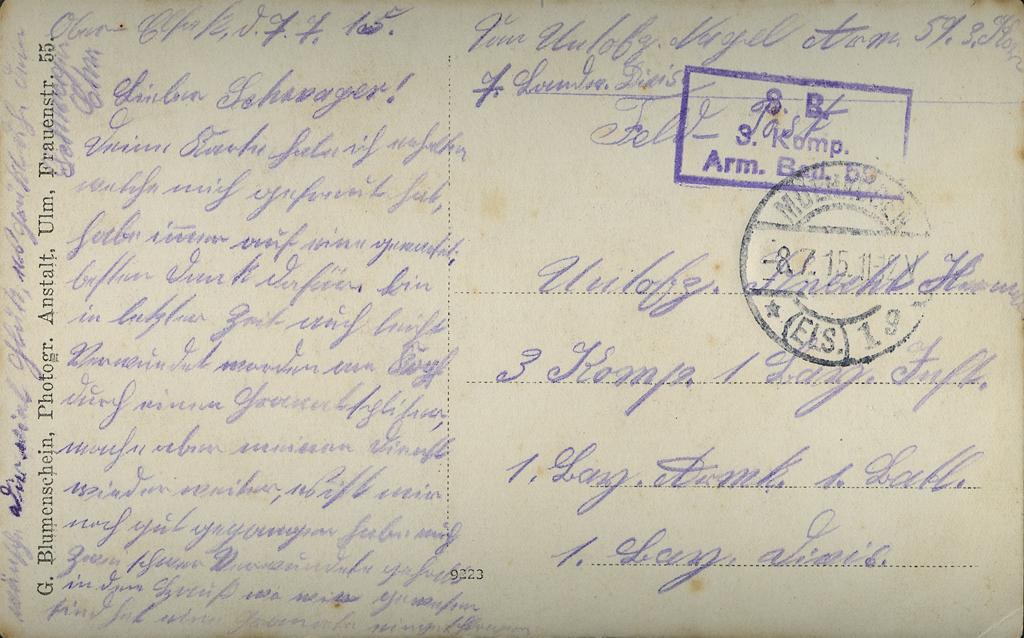 Ober Elsaß, d. 7. 7. 15.
Lieber Schwager!
Deine Karte habe ich erhalten
welche mich gefreut hat,
habe immer auf eine gewartet.
besten Dank dafür. bin
in letzter Zeit auch leicht
Verwundet worden am Kopf
durch einen Granatsplitter,
mache aber meinen Dienst
wieder weiter, es ist mir
noch gut gegangen haben noch
zwei schwer Verwundete gehabt
in dem Haus wo wir gewesen
sind hat eine Granate eingeschlagen
wünsche dir viel Glück,
Schwager
G. Blumenschein, Photogr. Anstalt, Ulm, Frauenstr. 55.
9223
Von Untofz. Nagel Arm. 59. 3. Kom
7. Landw. Divis
Feld-Post
S. B.
3. Komp.
Arm. Batl. 59
8.7.15
(ELS.)
19
Untofz. Knecht
3 Komp. 1 Bay. Inft.
1. Bay. Armk. 1. Batl.
1. Bay. Divis.